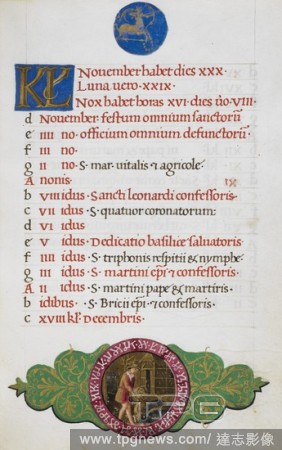 KL November habet dies XXX.
Luna uero XXIX.
Nox habet horas XVI. dies uo VIII.
d November festum omnium sanctorū
e IIII no. officium omnium defunctorū
f III no.
g II no. S. mar. uitalis ⁊ agricole.
A nonis. IX
b VIII idus. Sancti leonardi confessoris.
c VII idus. S. quatuor coronatorum:
d VI idus
e V idus. Dedicatio basilice saluatoris
f IIII idus. S. triphonis respitii ⁊ nymphe.
g III idus. S. martini epi. ⁊ confessoris.
A II idus. S. martini pape ⁊ martiris.
b idibus. S. Bricii epi ⁊ confessoris.
c XVIII kł. Decembris.
TPG
www.tpgnews.com / 達志影像